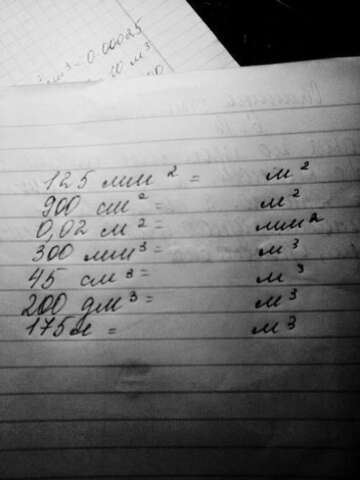 мм³ - 0.00025
м³
125 мм² = м²
900 см² = м²
0,02 м² = мм²
300 мм³ = м³
45 см³ = м³
200 дм³ = м³
175л = м³